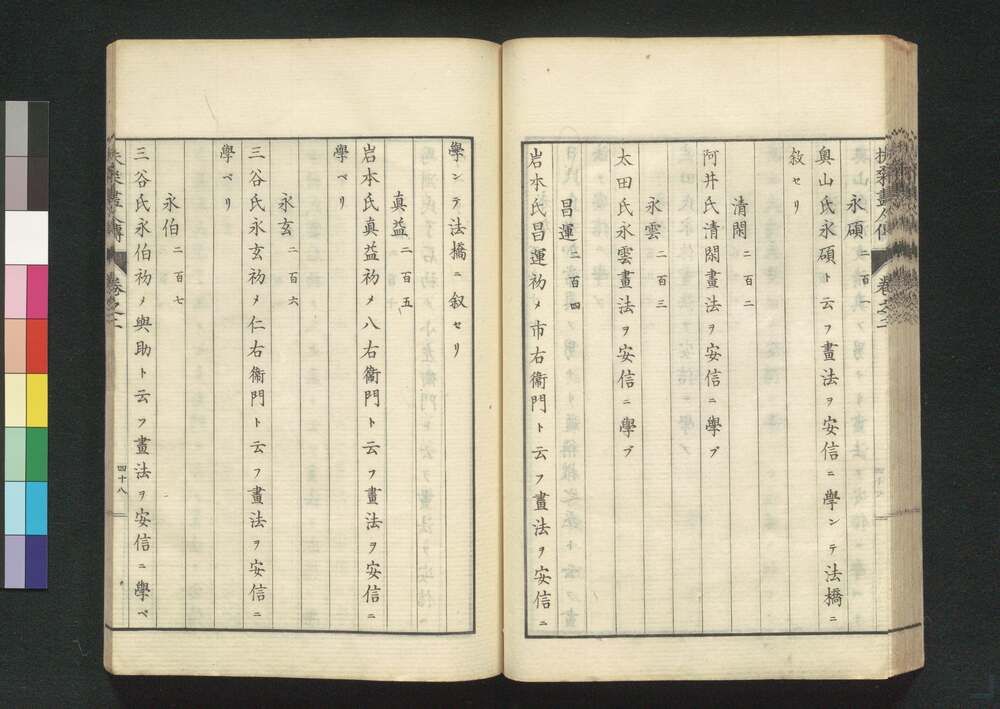 扶桑畫人傳 卷之二
永碩 二百一
奥山氏永碩ト云フ畫法ヲ安信ニ學ンテ法橋ニ
敘セリ
清閑 二百二
阿井氏清閑畫法ヲ安信ニ學ブ
永雲 二百三
太田氏永雲畫法ヲ安信ニ學ブ
昌運 二百四
岩本氏昌運初メ市右衞門ト云フ畫法ヲ安信ニ
學ンテ法橋ニ敘セリ
眞益 二百五
岩本氏眞益初メ八右衞門ト云フ畫法ヲ安信ニ
學ベリ
永玄 二百六
三谷氏永玄初メ仁右衞門ト云フ畫法ヲ安信ニ
學ベリ
永伯 二百七
三谷氏永伯初メ與助ト云フ畫法ヲ安信ニ學ベ
扶桑畫人傳 卷之二 四十八